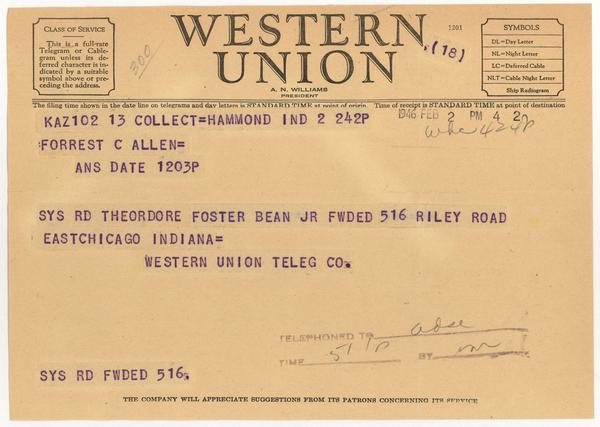 CLASS OF SERVICE
This is a full-rate
Telegram or Cable-
gram unless its de-
ferred character is in-
dicated by a suitable
symbol above or pre-
ceding the address.
300
WESTERN
UNION
A. N. WILLIAMS
PRESIDENT
1201
(18)
SYMBOLS
DL=Day Letter
NL=Night Letter
LC=Deferred Cable
NLT=Cable Night Letter
Ship Radiogram
The filing time shown in the date line on telegrams and day letters is STANDARD TIME at point of origin. Time of receipt is STANDARD TIME at point of destination
KAZ102 13 COLLECT=HAMMOND IND 2 242P
1946 FEB 2 PM 4 20
424P
:FORREST C ALLEN=
ANS DATE 1203P
SYS RD THEORDORE FOSTER BEAN JR FWDED 516 RILEY ROAD
EASTCHICAGO INDIANA=
WESTERN UNION TELEG CO.
TELEPHONED TO
TIME 511P BY
SYS RD FWDED 516.
THE COMPANY WILL APPRECIATE SUGGESTIONS FROM ITS PATRONS CONCERNING ITS SERVICE